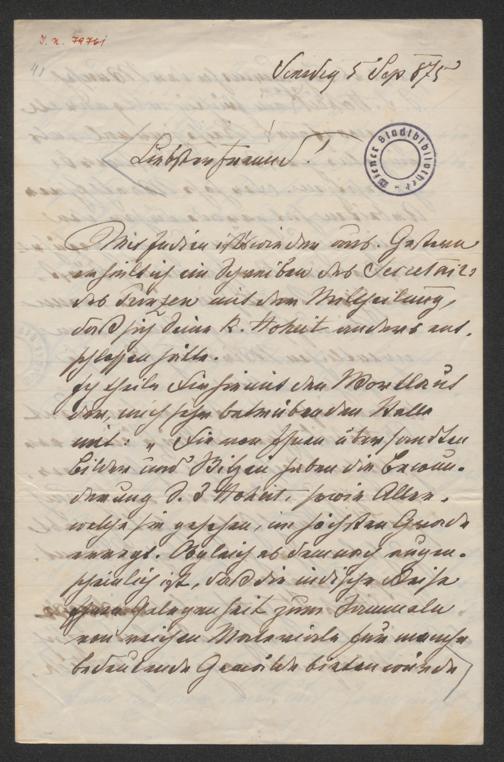 J. N. 79761
Venedig 5 Sep 875
Liebster Freund!
Wiener Stadtbibliothek
Mit Indien ist es wieder aus. Gestern
erhielt ich ein Schreiben des Secretairs
des Prinzen mit der Mittheilung,
daß sich Seine k. Hoheit anders ent-
schlossen hätte.
Ich theile Dir hiemit den Wortlaut
der, mich sehr betrübenden Stelle
mit: „Die von Ihnen übersandten
Bilder und Skizzen haben die Bewun-
derung S. k. Hoheit, sowie Aller,
welche sie gesehen, im höchsten Grade
erregt. Obgleich es demnach augen-
scheinlich ist, daß die indische Reise
Ihnen Gelegenheit zum Sammeln
von reichen Materiale für manche
bedeutende Gemälde bieten würde